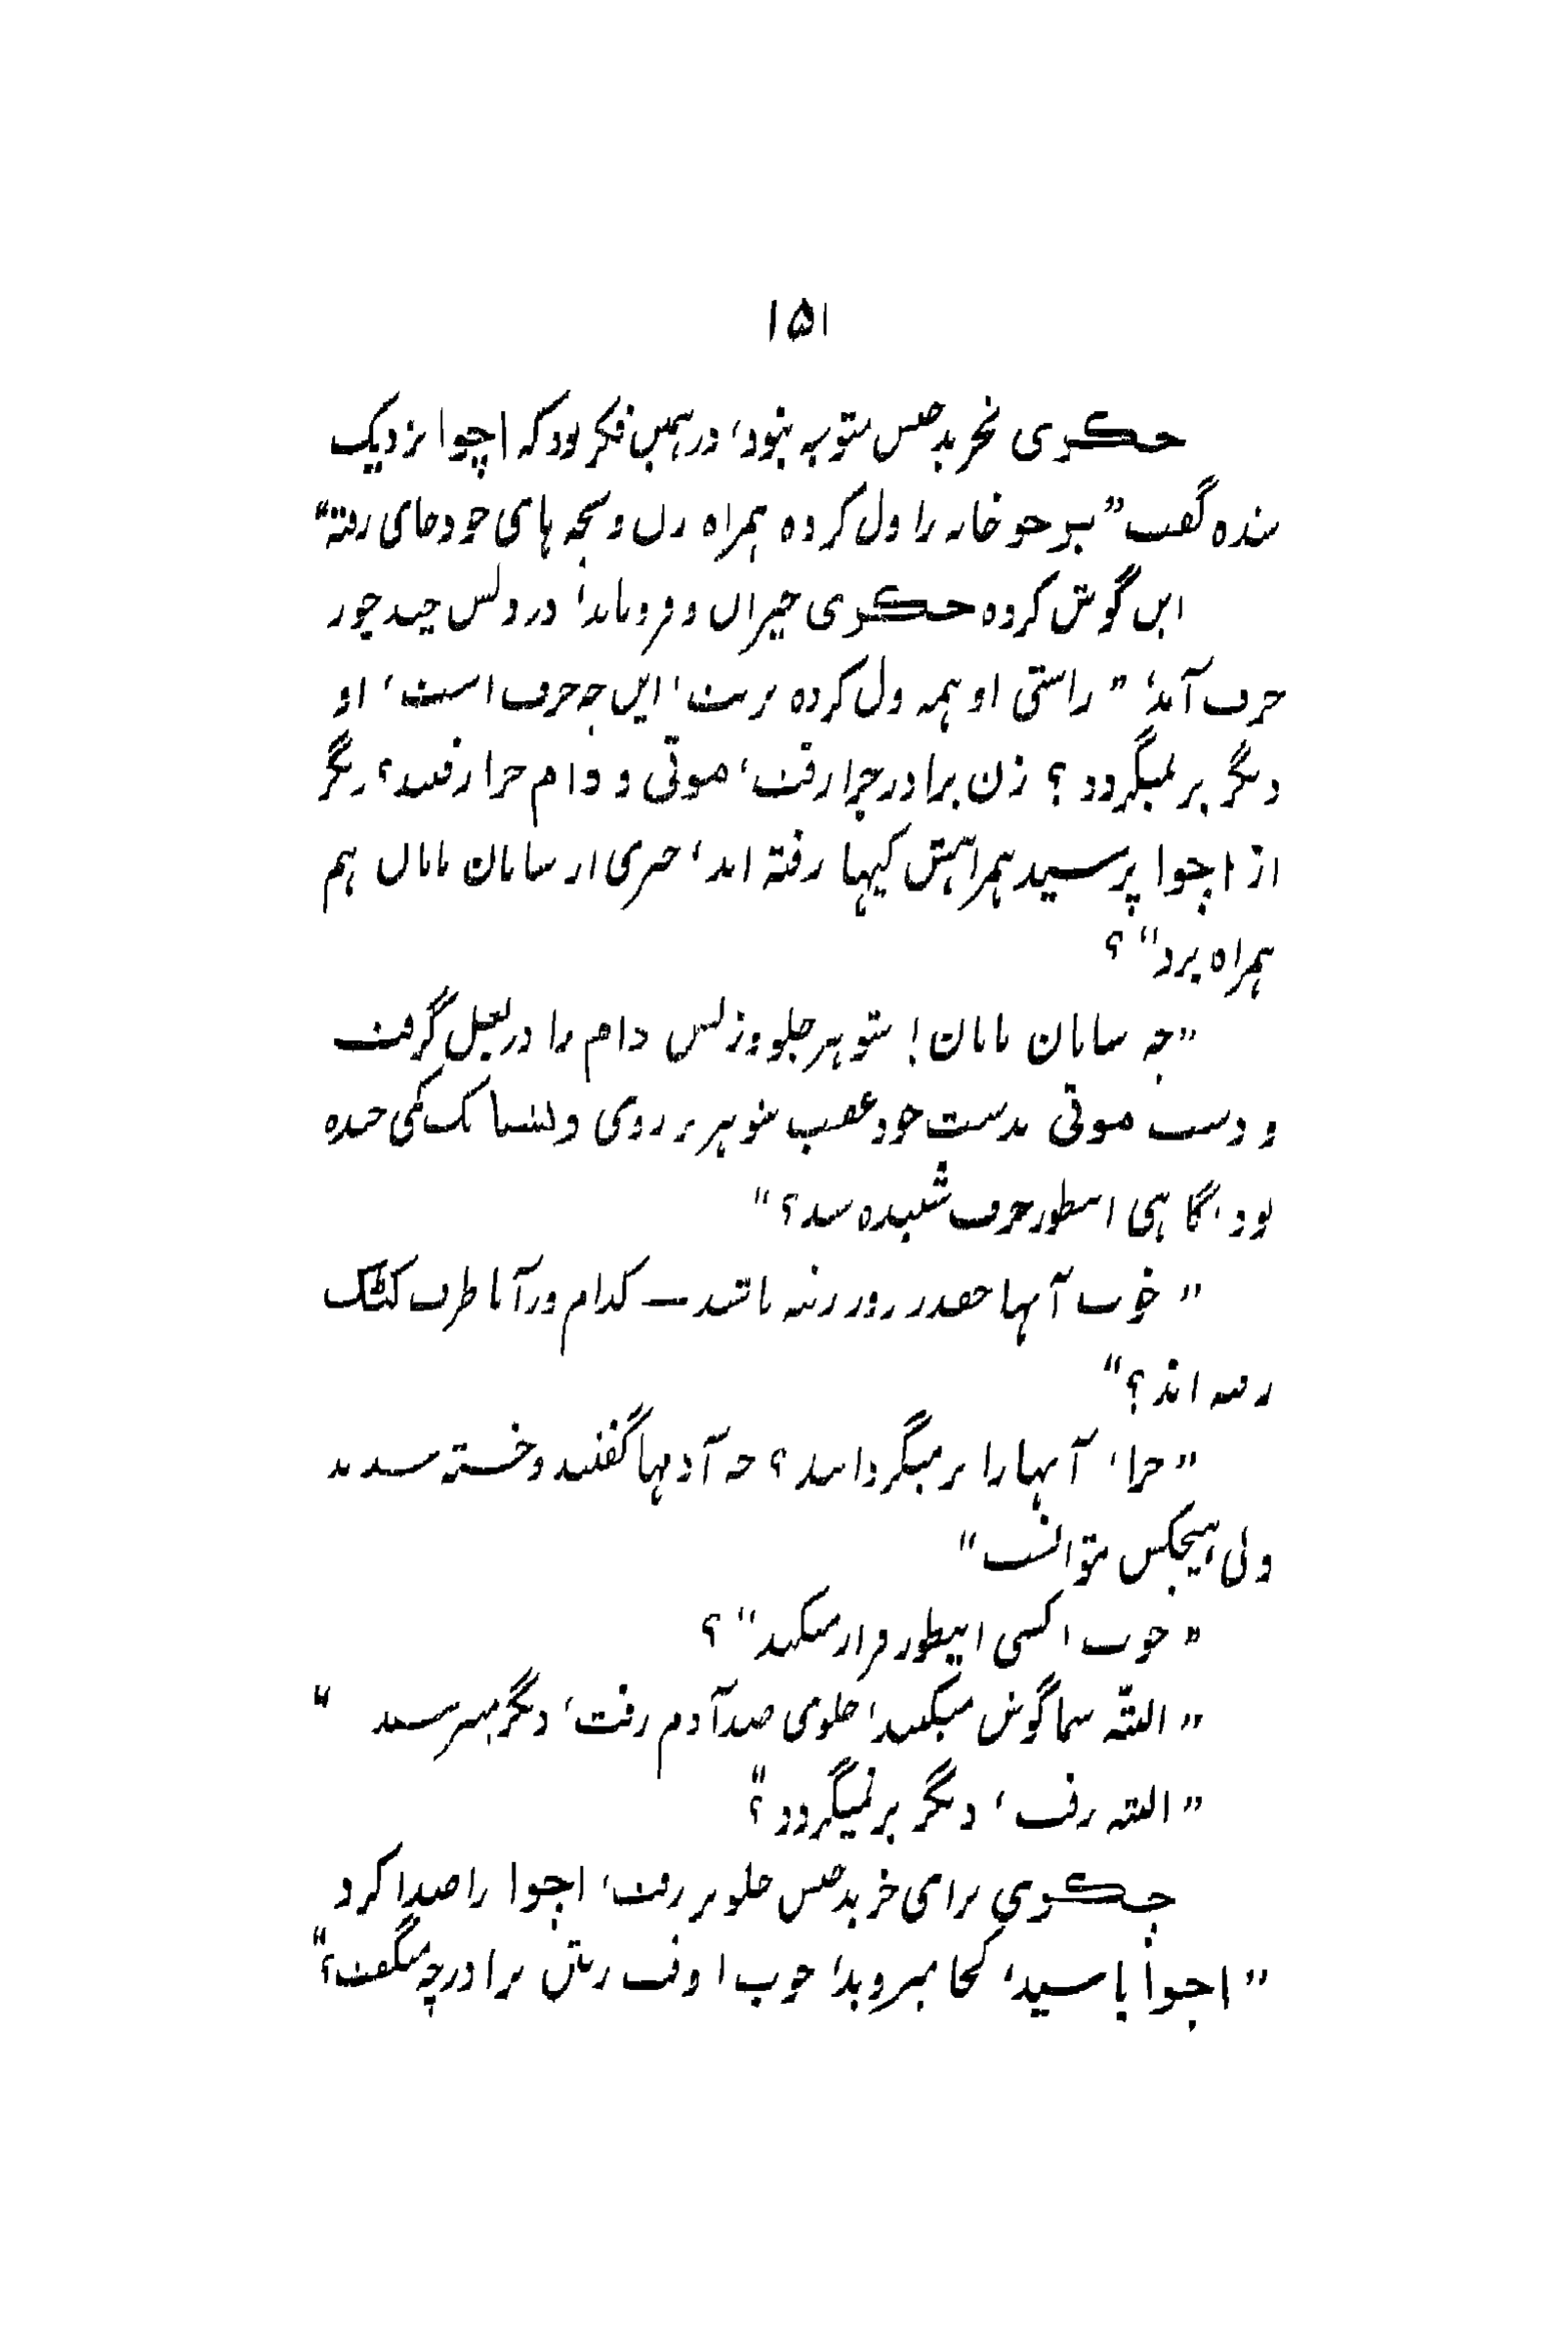 ۱۵۱
چکوری بخریدجنس متوجه نبود، درہمین فکر بود که اچوا نزدیک
شده گفت ”سوجو خانه را ول کرده ہمراہ زن و بچه ہای خود جای رفته“
این گوش کرده چکوری حیران و فروماند، در دلش چند جور
حرف آمد، ”راستی او ہمہ ول کرده رفت، این چه حرف است، او
دیگر بر نمیگردد؟ زن برادر چرا رفت، موتی و دام چرا رفتند؟ دیگر
از اچوا پرسید ہمراہش کیہا رفته اند، چیزی از سامان مامان ہم
ہمراہ برد“؟
”چه سامان مامان! شوہر جلو و زنش دام را در بغل گرفت
و دست موتی بدست خود عقب شوہر بر روی و کمی خنده
بود، گاہی اینطور حرف شنیده شد؟“
”خوب آنہا چقدر دور رفته باشند — کدام ور آنها طرف کٹک
رفته اند؟“
”چرا، آنہا را بر میگردانند؟ چه آدمہا گفتند و خسته شدند
ولی ہیچکس نتوانست“
”خوب اکسی اینطور فرار میکند“؟
”البتّه شما گوش میکنید، جلوی صد آدم رفت، دیگر میپرسید“
”البته رفت، دیگر بر نمیگردد؟“
چکوری برای خریدجنس جلوتر رفت، اچوا را صدا کرد
”اچوا باسید، کجا میروید، خوب او وقت رفتن برادر چه میگفت؟“